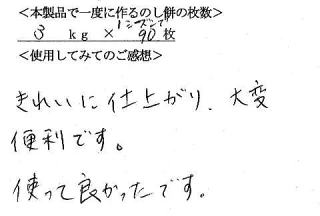 ＜本製品で一度に作るのし餅の枚数＞
1シーズンで
3 kg × 90 枚
＜使用してみてのご感想＞
きれいに仕上がり、大変
便利です。
使って良かったです。